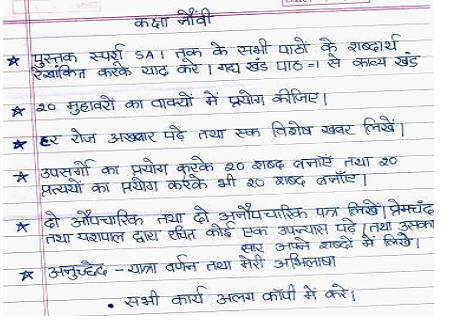 कक्षा नौवीं
★ पुस्तक स्पर्श SA1 तक के सभी पाठों के शब्दार्थ
रेखांकित करके याद करे। गद्य खंड पाठ-1 से काव्य खंड
★ 20 मुहावरों का वाक्यों में प्रयोग कीजिए।
★ हर रोज अखबार पढ़े तथा एक विशेष खबर लिखें।
★ उपसर्गों का प्रयोग करके 20 शब्द बनाएँ तथा 20
प्रत्ययों का प्रयोग करके भी 20 शब्द बनाएँ।
★ दो औपचारिक तथा दो अनौपचारिक पत्र लिखें। प्रेमचंद
तथा यशपाल द्वारा रचित कोई एक उपन्यास पढ़े। तथा उसका
सार अपने शब्दों में लिखें।
★ अनुच्छेद - यात्रा वर्णन तथा मेरी अभिलाषा
• सभी कार्य अलग कॉपी में करे।